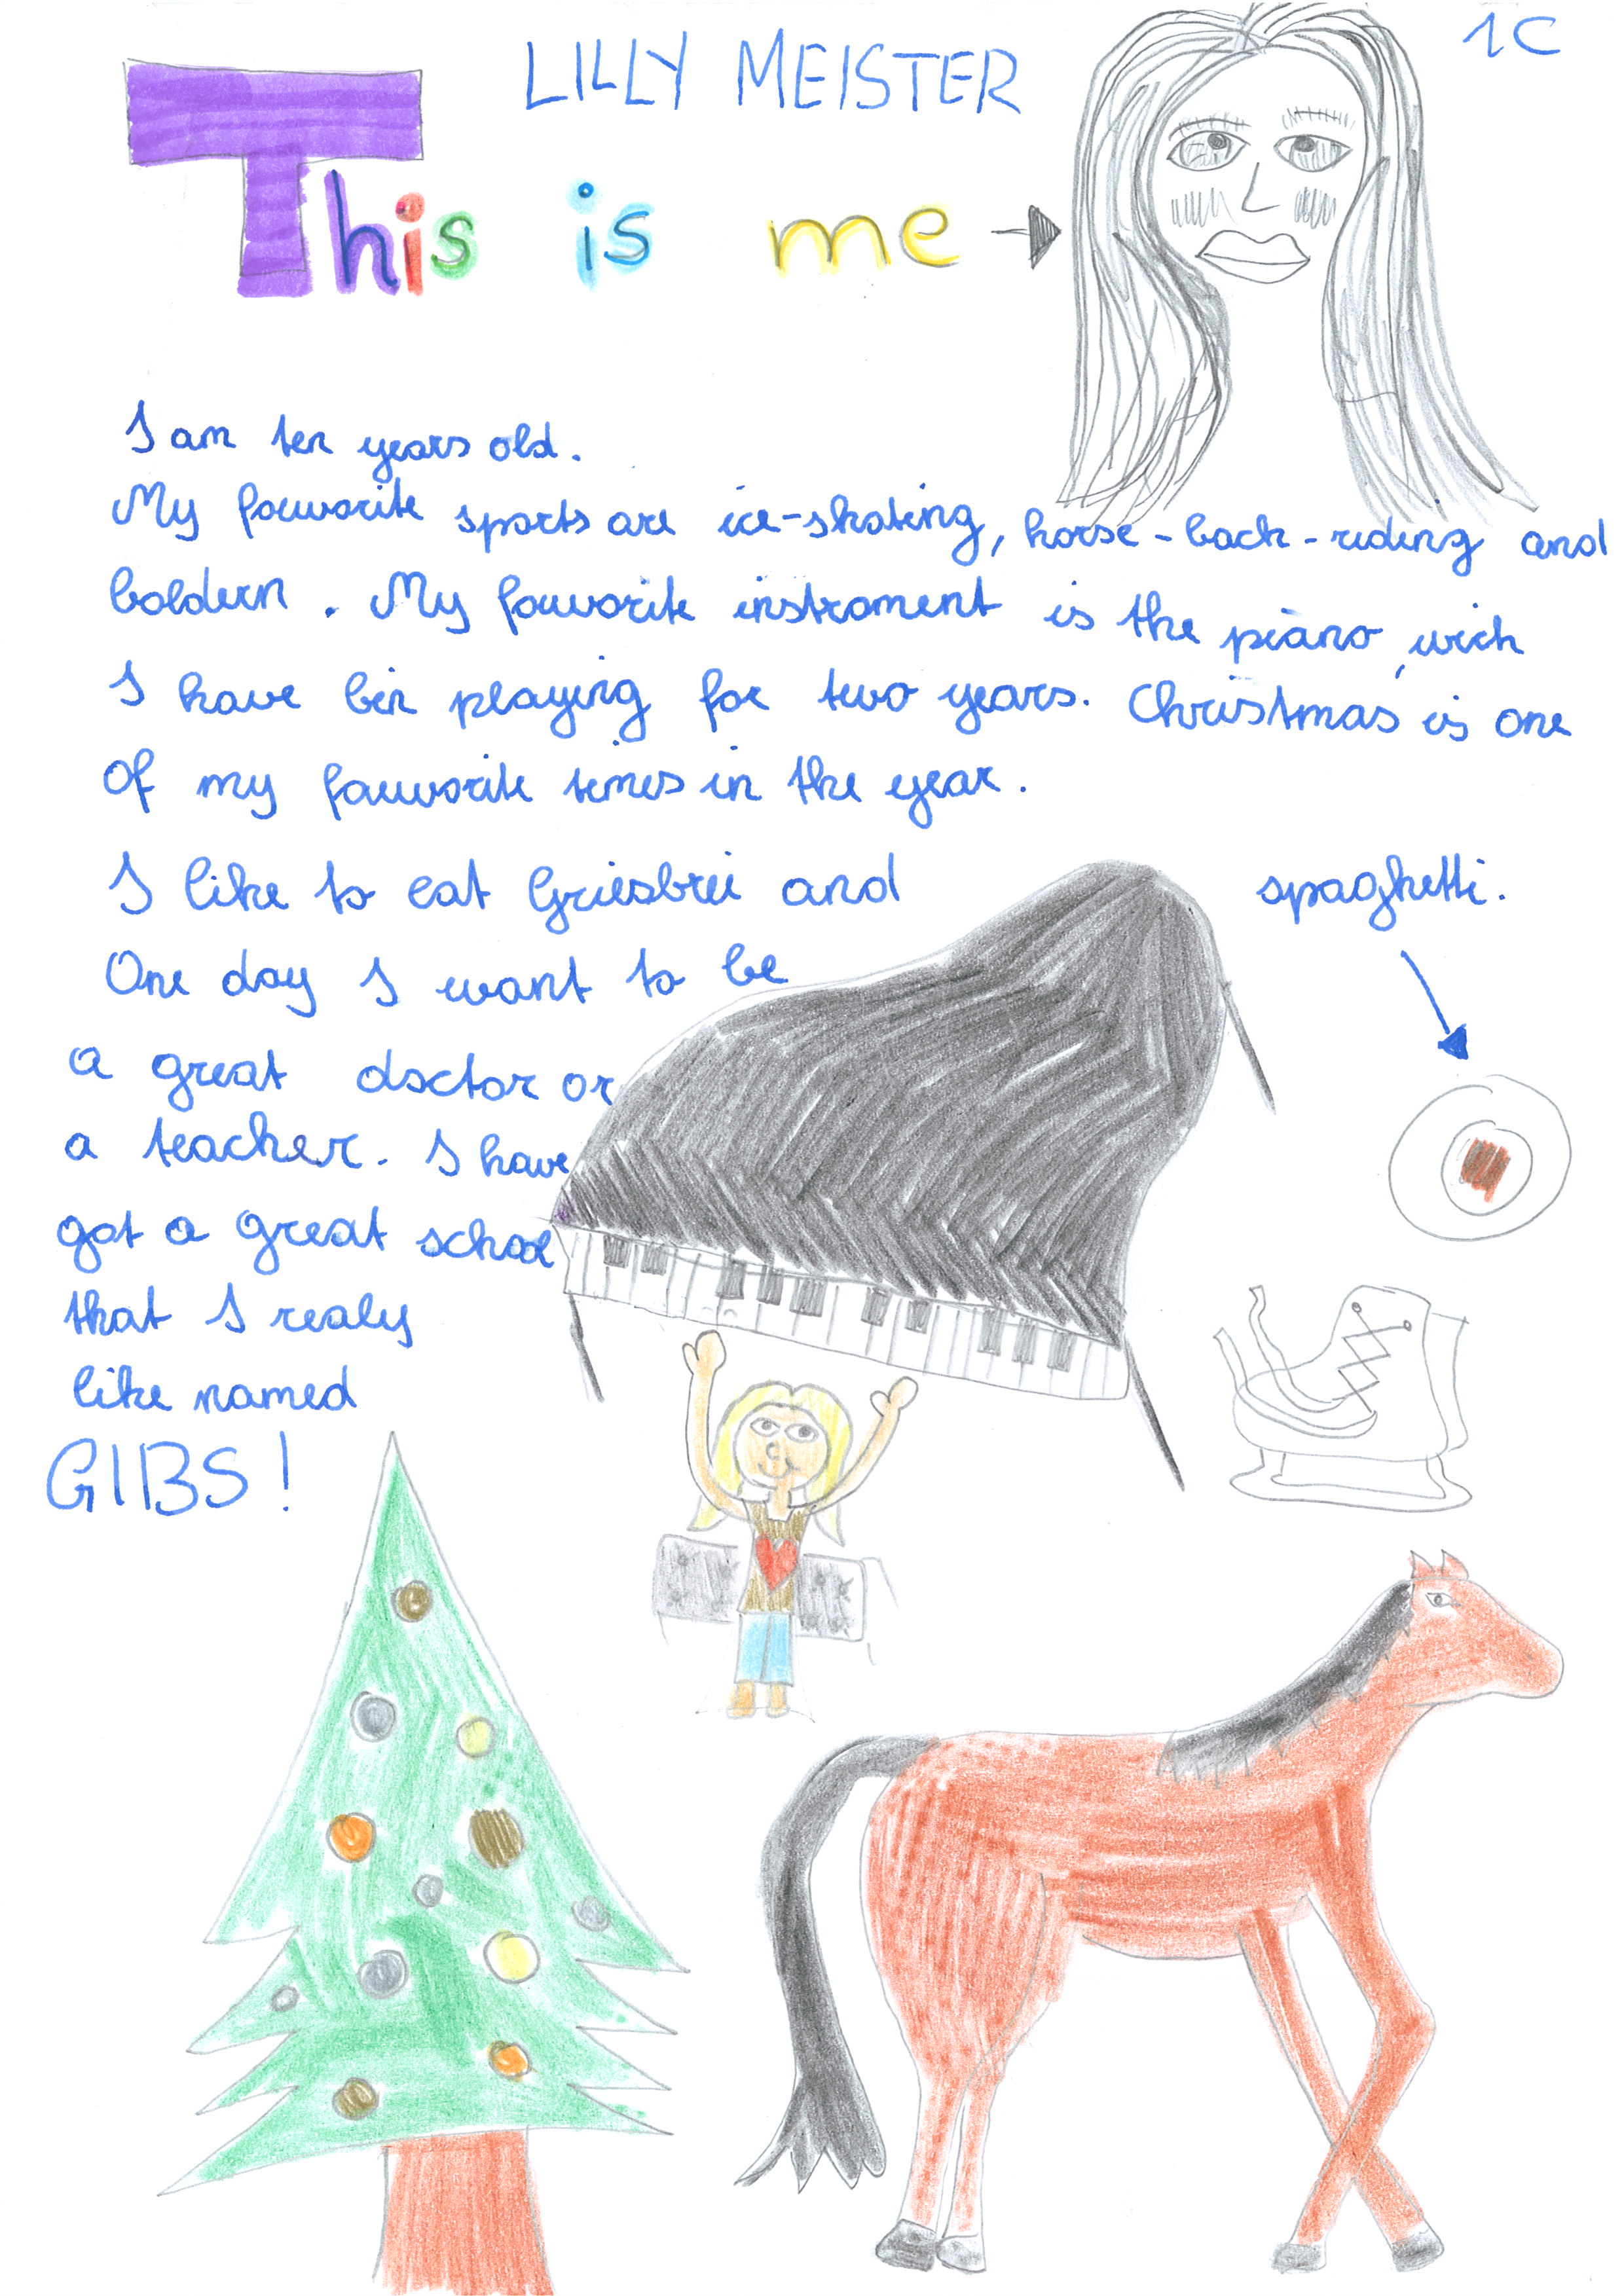 LILLY MEISTER
1C
This is me
I am ten years old.
My fauvorite sports are ice-skating, horse-back-riding and
boldern. My fauvorite instroment is the piano, wich
I have bin playing for two years. Christmas is one
of my fauvorite times in the year.
I like to eat Griesbrei and spaghetti.
One day I want to be
a great doctor or
a teacher. I have
got a great school
that I realy
like named
GIBS!